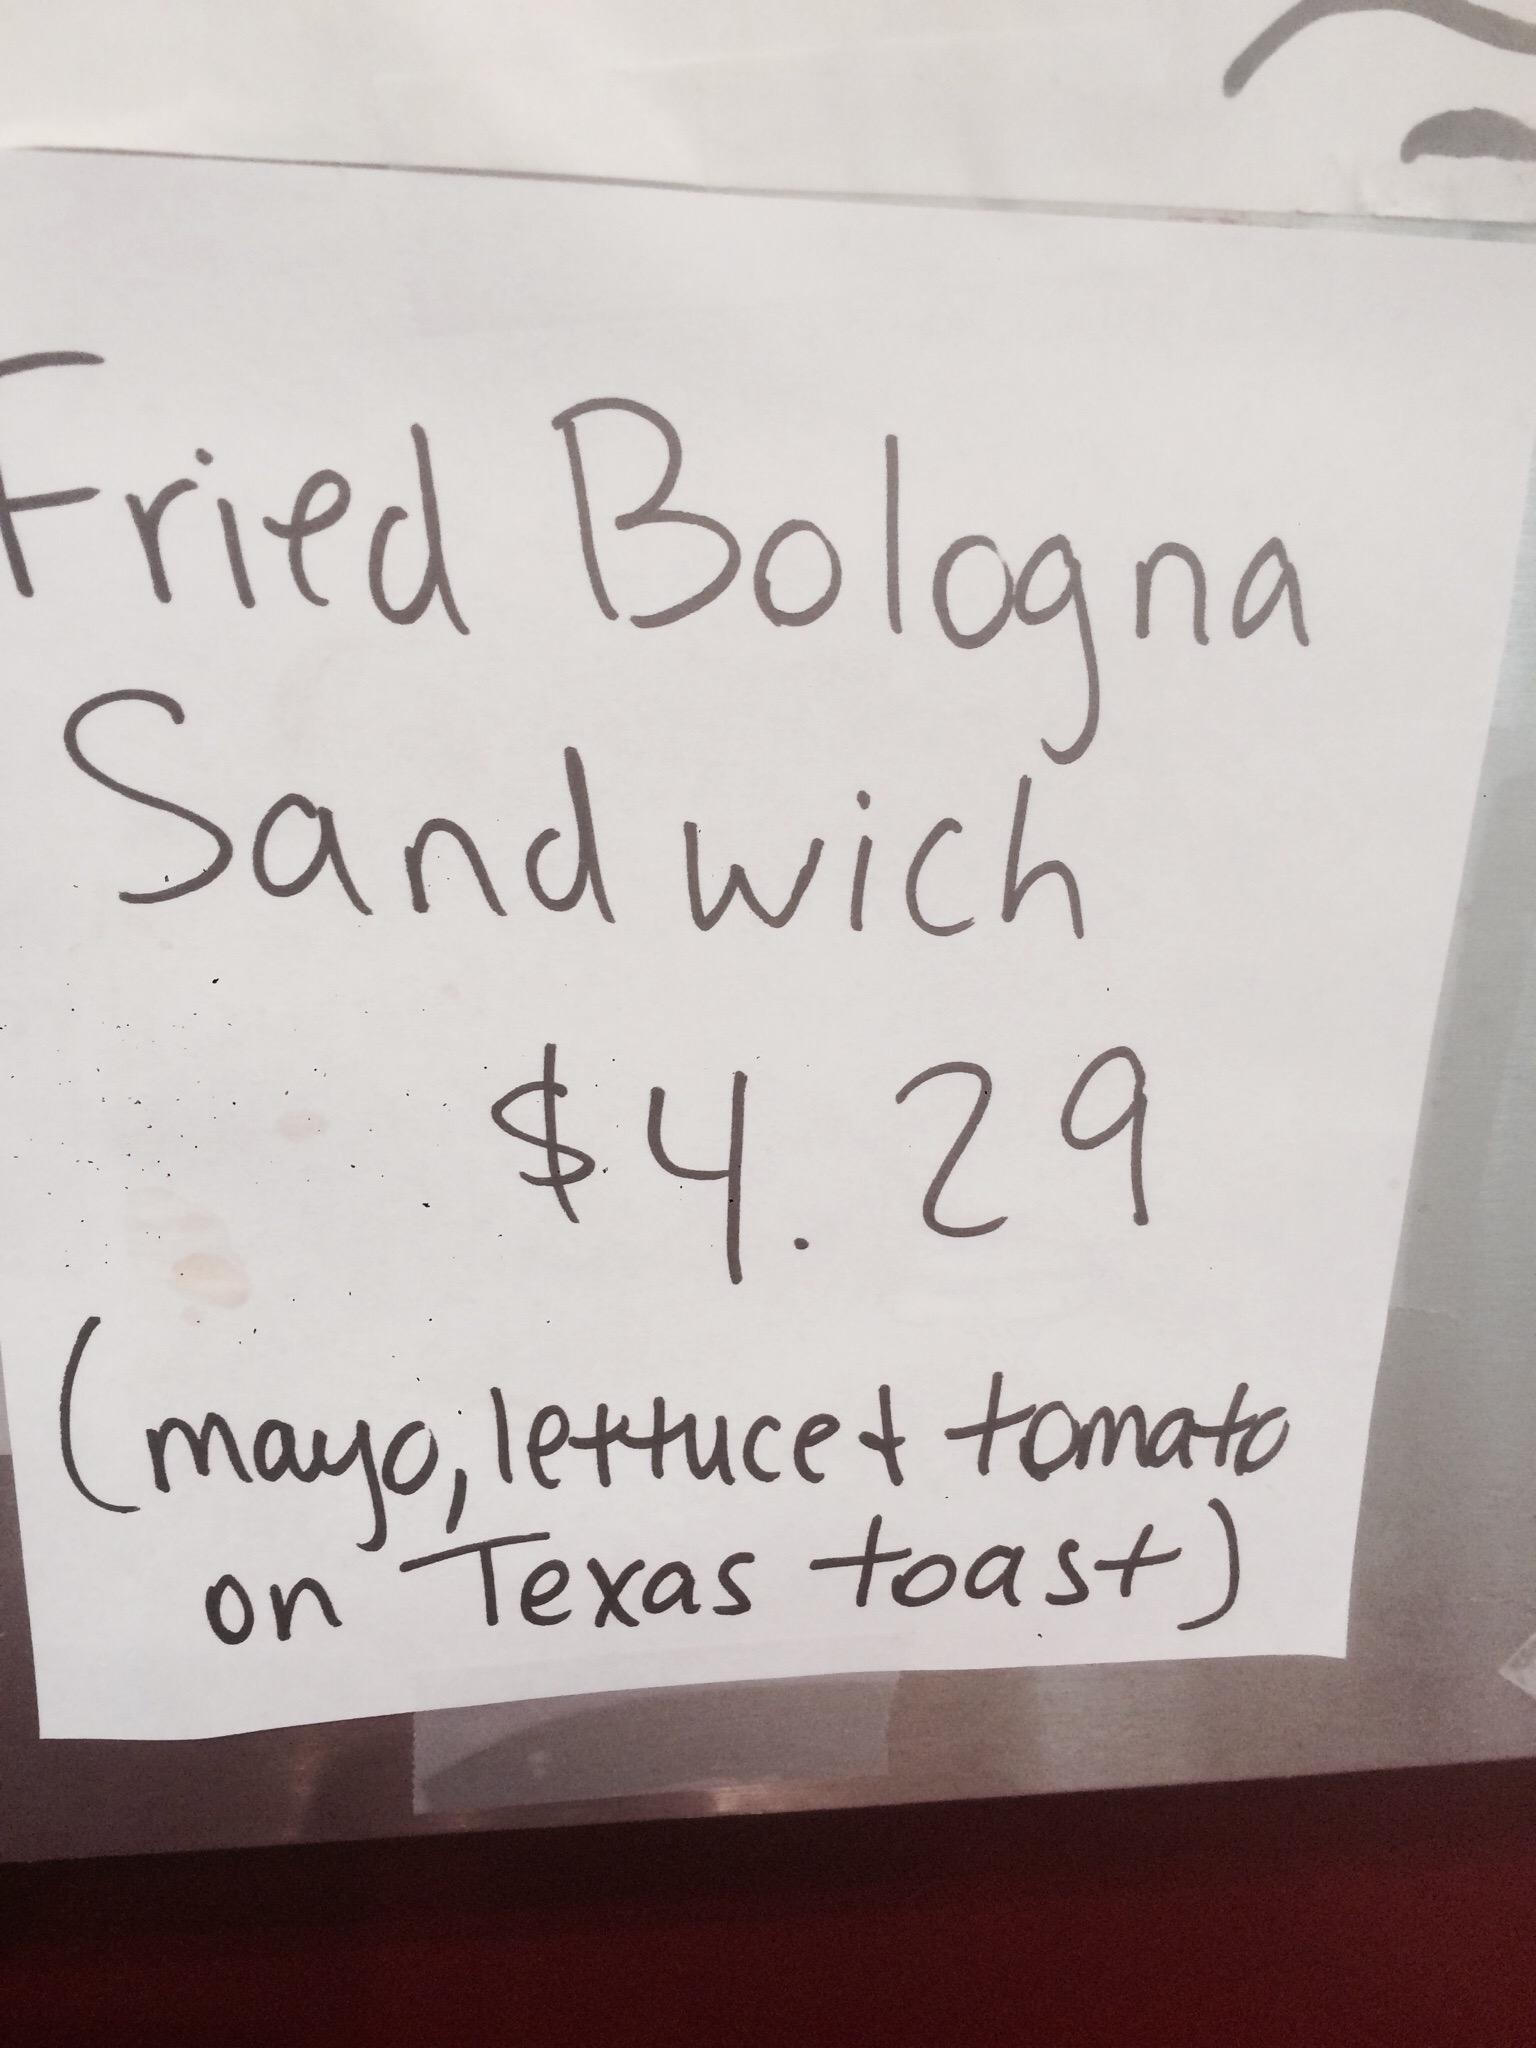 Fried Bologna
Sandwich
$4.29
(mayo, lettuce & tomato
on Texas toast)